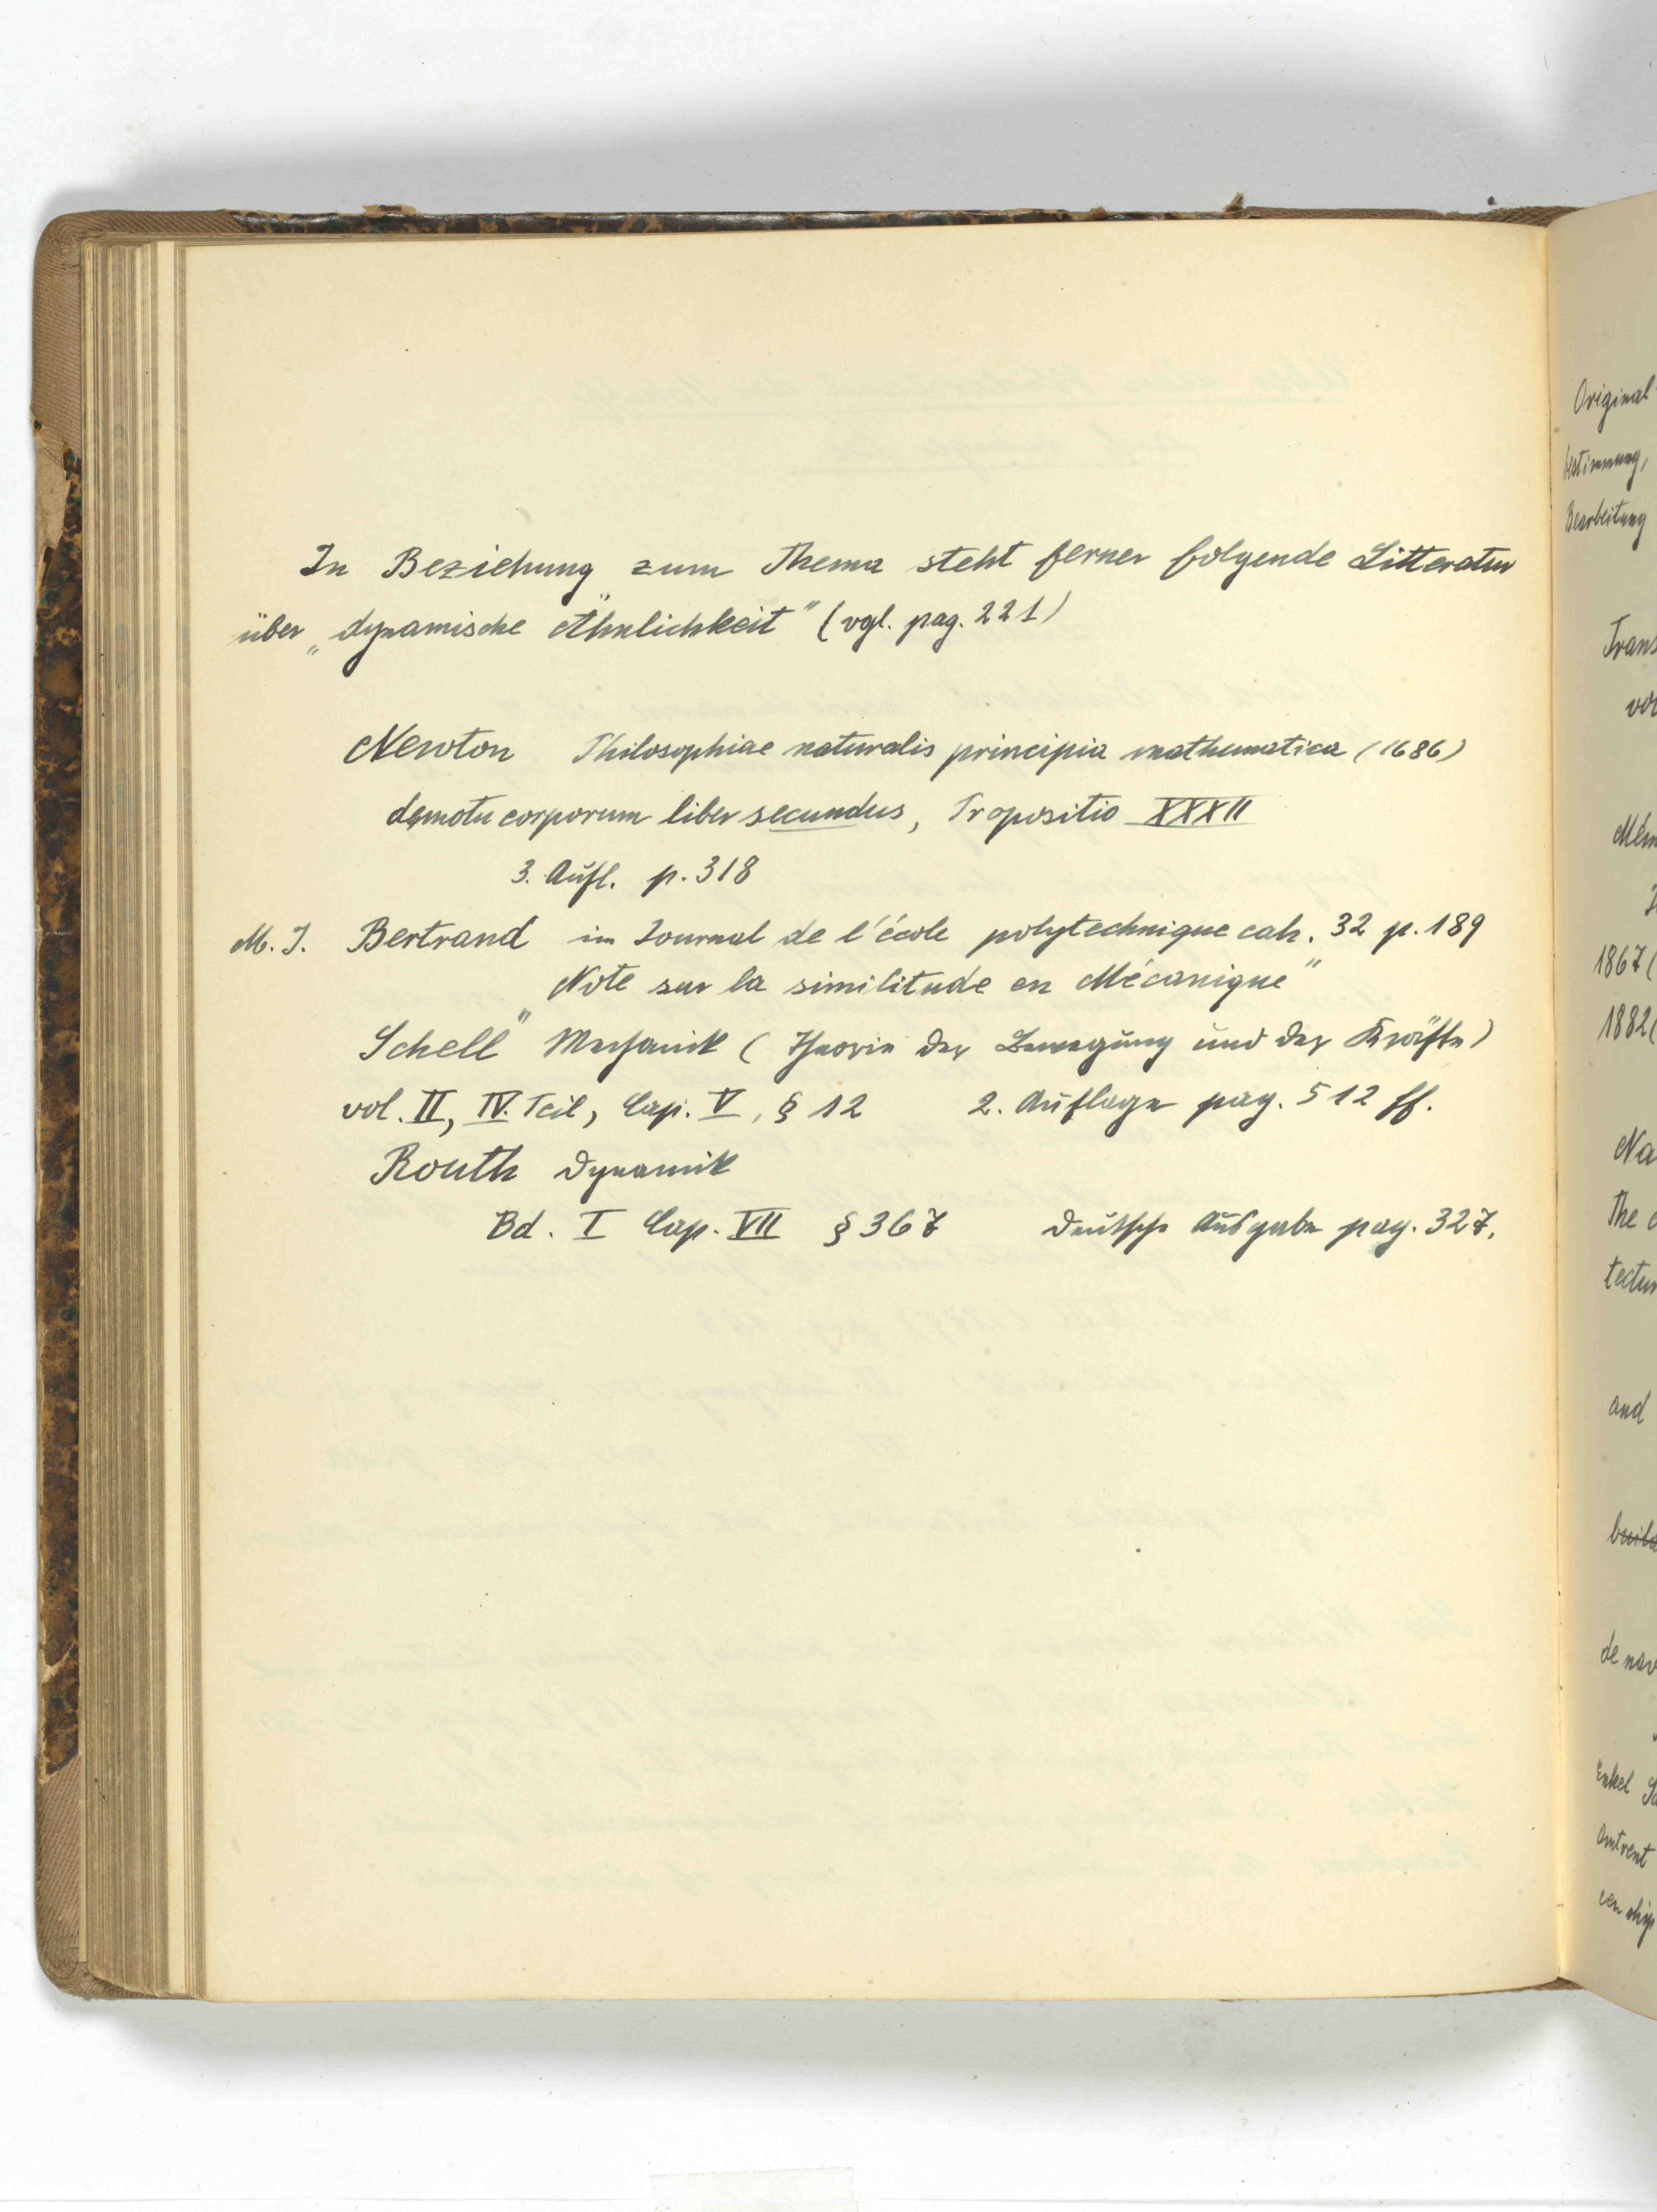 In Beziehung zum Thema steht ferner folgende Litteratur
über „dynamische Ähnlichkeit" (vgl. pag. 221)
Newton Philosophiae naturalis principia mathematica (1686)
de motu corporum liber secundus, Propositio XXXII
3. Aufl. p. 318
M. J. Bertrand im Journal de l'école polytechnique cah. 32 p. 189
„Note sur la similitude en Mécanique"
Schell Mechanik (Theorie der Bewegung und der Kräfte)
vol. II, IV. Teil, Cap. V, § 12 2. Auflage pag. 512 ff.
Routh Dynamik
Bd. I Cap. VII § 367 Deutsche Ausgabe pag. 327.
Original
bestimmung,
Bearbeitung
Trans
vor
Mém
1867 (
1882 (
Na
The c
tectur
and
de nav
Enkel
Omtrent